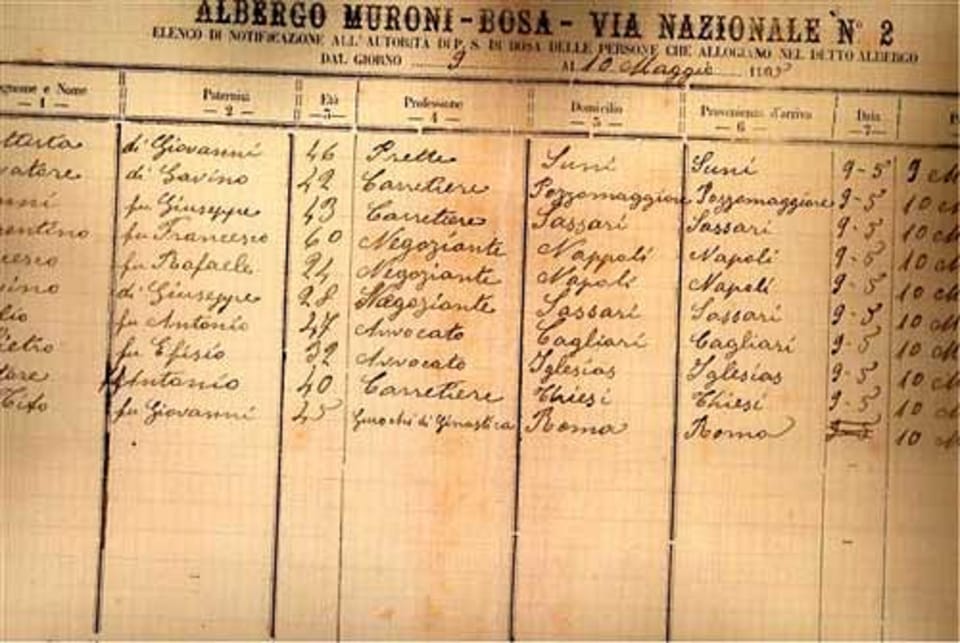 ALBERGO MURONI - BOSA - VIA NAZIONALE N° 2
ELENCO DI NOTIFICAZIONE ALL'AUTORITÀ DI P. S. DI BOSA DELLE PERSONE CHE ALLOGIANO NEL DETTO ALBERGO
DAL GIORNO 9 AL 10 Maggio
gnome e Nome Paternità Età Professione Domicilio Provenienza d'arrivo Data
— 1 — — 2 — — 3 — — 4 — — 5 — — 6 — — 7 —
di Giovanni 46 Prette Suni Suni 9-5 9 M
vatore di Gavino 42 Carretiere Pozzomaggiore Pozzomaggiore 9-5 10 M
nni fu Giuseppe 43 Carretiere Sassari Sassari 9-5 10 M
rentino fu Francesco 60 Negoziante Nappoli Napoli 9-5 10 M
cesco fu Rafaele 24 Negoziante Napoli Napoli 9-5 10 M
vino di Giuseppe 28 Negoziante Sassari Sassari 9-5 10 M
lio fu Antonio 47 Avvocato Cagliari Cagliari 9-5 10 M
Pietro fu Efisio 32 Avvocato Iglesias Iglesias 9-5 10 M
tore Antonio 40 Carretiere Thiesi Thiesi 9-5 10 M
Tito fu Giovanni 45 Giuochi di Ginastica Roma Roma 10 M